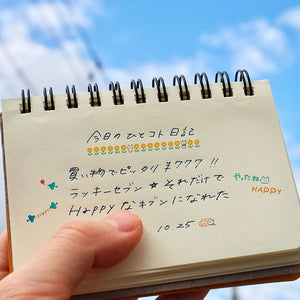 今日のひとコト日記
買い物でピッタリ ¥777 !!
ラッキーセブン☆それだけで
Happyなキブンになれた
やったね
HAPPY
10.25